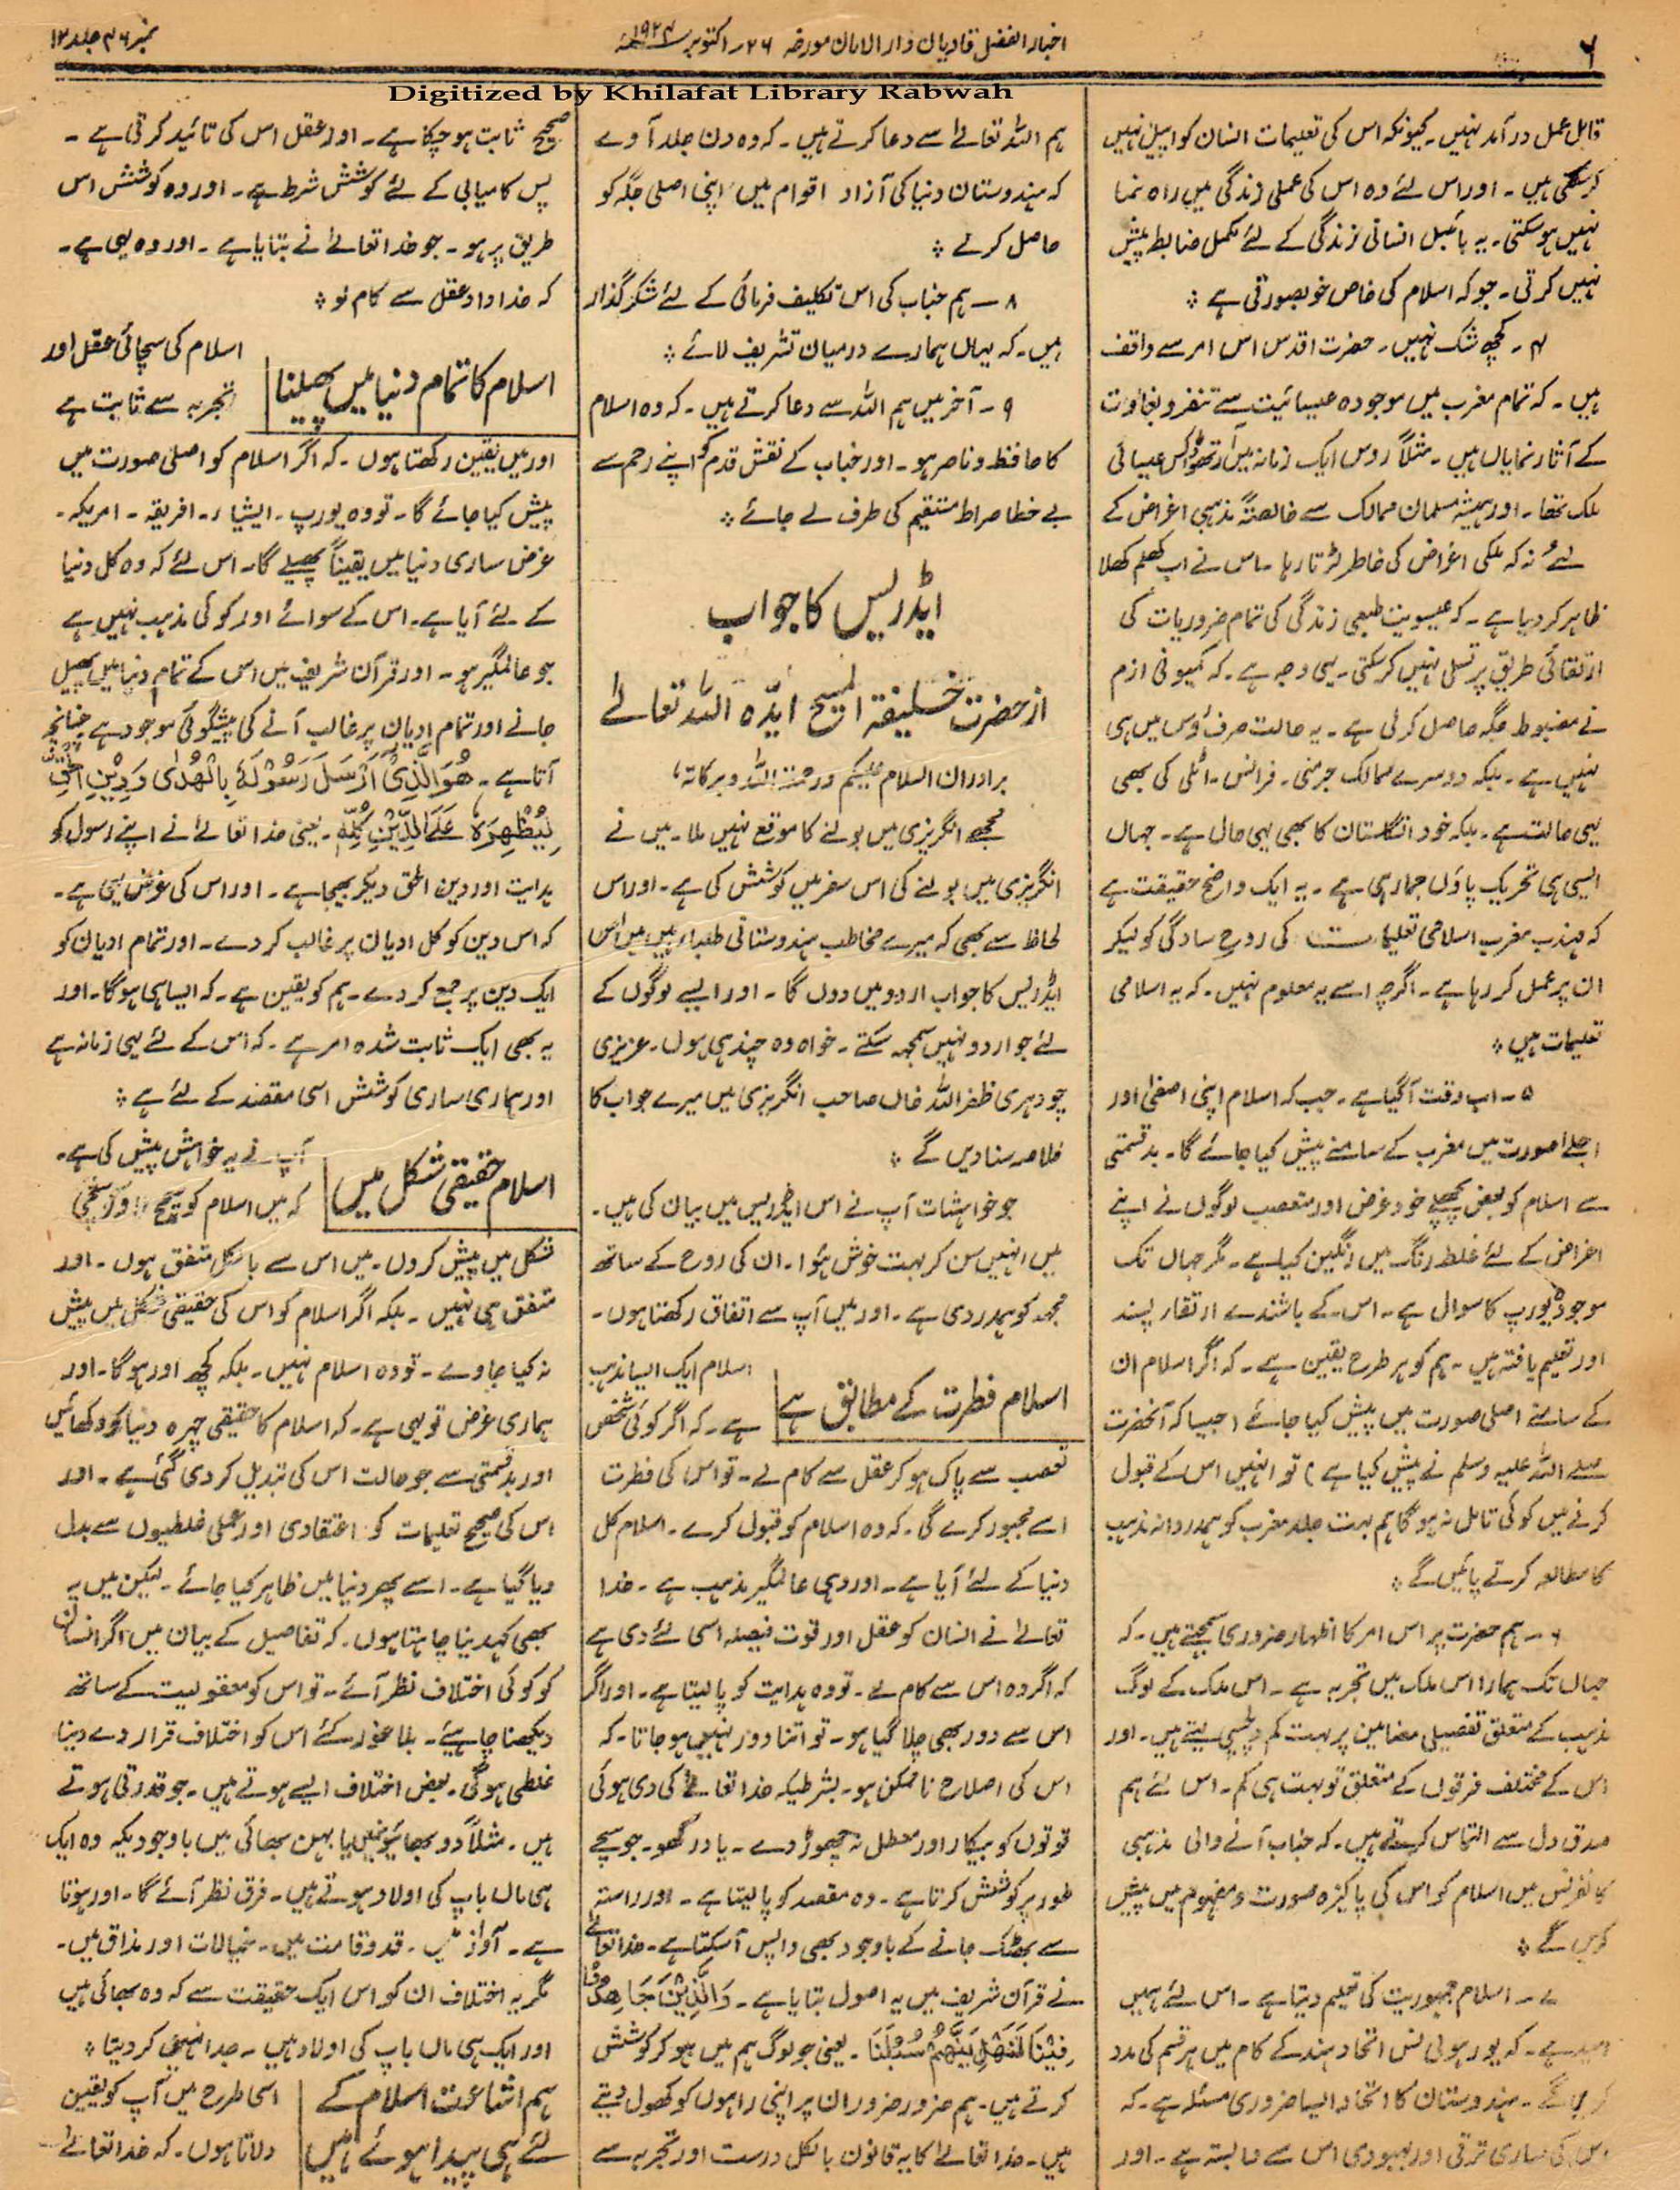 ۶
اخبار الفضل قادیان دار الامان مورخہ ۲۶؍اکتوبر ۱۹۲۴ء
نمبر ۴۶ جلد ۱۲
Digitized by Khilafat Library Rabwah
قابل عمل درآمد نہیں۔ کیونکہ اس کی تعلیمات انسان کو اپیل نہیں
کر سکتی ہیں۔ اور اس لئے وہ اس کی عملی زندگی میں راہ نما
نہیں ہو سکتی۔ یہ بائیبل انسانی زندگی کے لئے مکمل ضابطہ پیش
نہیں کرتی۔ جو کہ اسلام کی خاص خوبصورتی ہے ؞
۴۔ کچھ شک نہیں۔ حضرت اقدس اس امر سے واقف
ہیں۔ کہ تمام مغرب میں موجودہ عیسائیت سے تنفر و بغاوت
کے آثار نمایاں ہیں۔ مثلاً روس ایک زمانہ میں آرتھوڈاکس عیسائی
ملک تھا۔ اور ہمیشہ مسلمان ممالک سے خالصتہً مذہبی اغراض کے
لئے نہ کہ ملکی اغراض کی خاطر لڑتا رہا۔ اس نے اب کھلم کھلا
ظاہر کر دیا ہے۔ کہ عیسویت طبعی زندگی کی تمام ضروریات کی
ارتقائی طریق پر تسلی نہیں کر سکتی۔ یہی وجہ ہے۔ کہ کمیونی ازم
نے مضبوط جگہ حاصل کر لی ہے۔ یہ حالت صرف روس میں ہی
نہیں ہے۔ بلکہ دوسرے ممالک جرمنی۔ فرانس۔ اٹلی کی بھی
یہی حالت ہے۔ بلکہ خود انگلستان کا بھی یہی حال ہے۔ جہاں
ایسی ہی تحریک پاؤں جما رہی ہے۔ یہ ایک واضح حقیقت ہے
کہ مہذب مغرب اسلامی تعلیمات کی روح سادگی کو لیکر
ان پر عمل کر رہا ہے۔ اگرچہ اسے یہ معلوم نہیں۔ کہ یہ اسلامی
تعلیمات ہیں ؞
۵۔ اب وقت آگیا ہے۔ جب کہ اسلام اپنی اصفیٰ اور
اجلےٰ صورت میں مغرب کے سامنے پیش کیا جائے گا۔ بدقسمتی
سے اسلام کو بعض پچھلے خود غرض اور متعصب لوگوں نے اپنے
اغراض کے لئے غلط رنگ میں رنگین کیا ہے۔ مگر جہاں تک
موجودہ یورپ کا سوال ہے۔ اس کے باشندے ارتقاء پسند
اور تعلیم یافتہ ہیں۔ ہم کو ہر طرح یقین ہے۔ کہ اگر اسلام ان
کے سامنے اصلی صورت میں پیش کیا جائے (جیسا کہ آنحضرت
صلے اللہ علیہ وسلم نے پیش کیا ہے) تو انہیں اس کے قبول
کرنے میں کوئی تامل نہ ہوگا ہم بہت جلد مغرب کو ہمدردانہ مذہب
کا مطالعہ کرتے پائیں گے ؞
۶۔ ہم حضرت پر اس امر کا اظہار ضروری سمجھتے ہیں۔ کہ
جہاں تک ہمارا اس ملک میں تجربہ ہے۔ اس ملک کے لوگ
مذہب کے متعلق تفصیلی مضامین پر بہت کم دلچسپی لیتے ہیں۔ اور
اس کے مختلف فرقوں کے متعلق تو بہت ہی کم۔ اس لئے ہم
صدق دل سے التماس کرتے ہیں۔ کہ جناب آنے والی مذہبی
کانفرنس میں اسلام کو اس کی پاکیزہ صورت و مفہوم میں پیش
کریں گے ؞
۷۔ اسلام جمہوریت کی تعلیم دیتا ہے۔ اس لئے ہمیں
امید ہے۔ کہ یور ہولی نس اتحاد ہند کے کام میں ہر قسم کی مدد
کریں گے۔ ہندوستان کا اتحاد ایسا ضروری مسئلہ ہے۔ کہ
اس کی ساری ترقی اور بہبودی اس سے وابستہ ہے۔ اور
ہم اللہ تعالےٰ سے دعا کرتے ہیں۔ کہ وہ دن جلد آوے
کہ ہندوستان دنیا کی آزاد اقوام میں اپنی اصلی جگہ کو
حاصل کرلے ؞
۸۔ ہم جناب کی اس تکلیف فرمائی کے لئے شکر گذار
ہیں۔ کہ یہاں ہمارے درمیان تشریف لائے ؞
۹۔ آخر میں ہم اللہ سے دعا کرتے ہیں۔ کہ وہ اسلام
کا حافظ و ناصر ہو۔ اور جناب کے نقش قدم کو اپنے رحم سے
بے خطا صراط مستقیم کی طرف لے جائے ؞
ایڈریس کا جواب
از حضرت خلیفۃ المسیح ایدہ اللہ تعالےٰ
برادران السلام علیکم ورحمۃ اللہ وبرکاتہ،
مجھے انگریزی میں بولنے کا موقع نہیں ملا۔ میں نے
انگریزی میں بولنے کی اس سفر میں کوشش کی ہے۔ اور اس
لحاظ سے بھی کہ میرے مخاطب ہندوستانی طلباء ہیں میں اس
ایڈریس کا جواب اردو میں دوں گا۔ اور ایسے لوگوں کے
لئے جو اردو نہیں سمجھ سکتے۔ خواہ وہ چند ہی ہوں۔ عزیزی
چودہری ظفر اللہ خاں صاحب انگریزی میں میرے جواب کا
خلاصہ سنا دیں گے ؞
جو خواہشات آپ نے اس ایڈریس میں بیان کی ہیں۔
میں انہیں سن کر بہت خوش ہؤا۔ ان کی روح کے ساتھ
مجھ کو ہمدردی ہے۔ اور میں آپ سے اتفاق رکھتا ہوں۔
اسلام فطرت کے مطابق ہے
اسلام ایک ایسا مذہب
ہے۔ کہ اگر کوئی شخص
تعصب سے پاک ہو کر عقل سے کام لے۔ تو اس کی فطرت
اسے مجبور کرے گی۔ کہ وہ اسلام کو قبول کرے۔ اسلام کل
دنیا کے لئے آیا ہے۔ اور وہی عالمگیر مذہب ہے۔ خدا
تعالےٰ نے انسان کو عقل اور قوت فیصلہ اسی لئے دی ہے
کہ اگر وہ اس سے کام لے۔ تو وہ ہدایت کو پا لیتا ہے۔ اور اگر
اس سے دور بھی چلا گیا ہو۔ تو اتنا دور نہیں ہو جاتا۔ کہ
اس کی اصلاح ناممکن ہو۔ بشرطیکہ خدا تعالےٰ کی دی ہوئی
قوتوں کو بیکار اور معطل نہ چھوڑ دے۔ یاد رکھو۔ جو سچے
طور پر کوشش کرتا ہے۔ وہ مقصد کو پا لیتا ہے۔ اور راستہ
سے بھٹک جانے کے باوجود بھی واپس آ سکتا ہے۔ خدا تعالےٰ
نے قرآن شریف میں یہ اصول بتایا ہے۔ وَالَّذِیْنَ جَاھَدُوْا
فِیْنَا لَنَھْدِیَنَّھُمْ سُبُلَنَا۔ یعنی جو لوگ ہم میں ہو کر کوشش
کرتے ہیں۔ ہم ضرور ضرور ان پر اپنی راہوں کو کھول دیتے
ہیں۔ خدا تعالےٰ کا یہ قانون بالکل درست اور تجربہ سے
صحیح ثابت ہو چکا ہے۔ اور عقل اس کی تائید کرتی ہے۔
پس کامیابی کے لئے کوشش شرط ہے۔ اور وہ کوشش اس
طریق پر ہو۔ جو خدا تعالےٰ نے بتایا ہے۔ اور وہ یہی ہے۔
کہ خداداد عقل سے کام لو ؞
اسلام کا تمام دنیا میں پھیلنا
اسلام کی سچائی عقل اور
تجربہ سے ثابت ہے
اور میں یقین رکھتا ہوں۔ کہ اگر اسلام کو اصلی صورت میں
پیش کیا جائے گا۔ تو وہ یورپ۔ ایشیاء۔ افریقہ۔ امریکہ۔
غرض ساری دنیا میں یقیناً پھیلے گا۔ اس لئے کہ وہ کل دنیا
کے لئے آیا ہے۔ اس کے سوائے اور کوئی مذہب نہیں ہے
جو عالمگیر ہو۔ اور قرآن شریف میں اس کے تمام دنیا میں پھیل
جانے اور تمام ادیان پر غالب آنے کی پیشگوئی موجود ہے چنانچہ
آتا ہے۔ ھُوَ الَّذِیْ اَرْسَلَ رَسُوْلَہٗ بِالْھُدٰی وَدِیْنِ الْحَقِّ
لِیُظْھِرَہٗ عَلَی الدِّیْنِ کُلِّہٖ۔ یعنی خدا تعالےٰ نے اپنے رسول کو
ہدایت اور دین الحق دیکر بھیجا ہے۔ اور اس کی غرض یہی ہے۔
کہ اس دین کو کل ادیان پر غالب کر دے۔ اور تمام ادیان کو
ایک دین پر جمع کر دے۔ ہم کو یقین ہے۔ کہ ایسا ہی ہوگا۔ اور
یہ بھی ایک ثابت شدہ امر ہے۔ کہ اس کے لئے یہی زمانہ ہے
اور ہماری ساری کوشش اسی مقصد کے لئے ہے ؞
اسلام حقیقی شکل میں
آپ نے یہ خواہش پیش کی ہے۔
کہ میں اسلام کو صحیح اور سچی
شکل میں پیش کروں۔ میں اس سے بالکل متفق ہوں۔ اور
متفق ہی نہیں۔ بلکہ اگر اسلام کو اس کی حقیقی شکل میں پیش
نہ کیا جاوے۔ تو وہ اسلام نہیں۔ بلکہ کچھ اور ہوگا۔ اور
ہماری غرض تو یہی ہے۔ کہ اسلام کا حقیقی چہرہ دنیا کو دکھائیں
اور بدقسمتی سے جو حالت اس کی تبدیل کر دی گئی ہے۔ اور
اس کی صحیح تعلیمات کو اعتقادی اور عملی غلطیوں سے بدل
دیا گیا ہے۔ اسے پھر دنیا میں ظاہر کیا جائے۔ لیکن میں یہ
بھی کہدینا چاہتا ہوں۔ کہ تفاصیل کے بیان میں اگر انسان
کو کوئی اختلاف نظر آئے۔ تو اس کو معقولیت کے ساتھ
دیکھنا چاہیئے۔ بلا غور کئے اس کو اختلاف قرار دے دینا
غلطی ہوگی۔ بعض اختلاف ایسے ہوتے ہیں۔ جو قدرتی ہوتے
ہیں۔ مثلاً دو بھائیوں میں یا بہن بھائی میں باوجودیکہ وہ ایک
ہی ماں باپ کی اولاد ہوتے ہیں۔ فرق نظر آئے گا۔ اور ہوتا
ہے۔ آواز میں۔ قد و قامت میں۔ خیالات اور مذاق میں۔
مگر یہ اختلاف ان کو اس ایک حقیقت سے کہ وہ بھائی ہیں
اور ایک ہی ماں باپ کی اولاد ہیں۔ جدا نہیں کر دیتا ؞
ہم اشاعت اسلام کے
لئے ہی پیدا ہوئے ہیں
اسی طرح میں آپ کو یقین
دلاتا ہوں۔ کہ خدا تعالےٰ